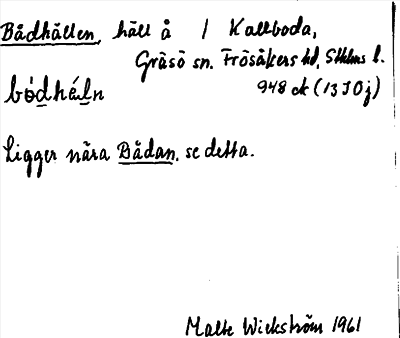 Bådhällen, häll å / Kallboda,
Gräsö sn. Frösåkers hd, Sthlms l.
bódhéln 948 ck (13 I 0j)
Ligger nära Bådan, se detta.
Malte Wickström 1961